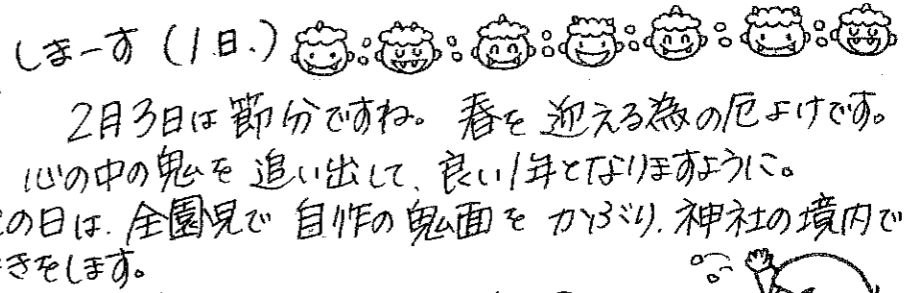 しまーす（1日.）
2月3日は節分ですね。春を迎える為の厄よけです。
心の中の鬼を追い出して、良い1年となりますように。
の日は、全園児で自作の鬼面をかぶり、神社の境内で
きをします。